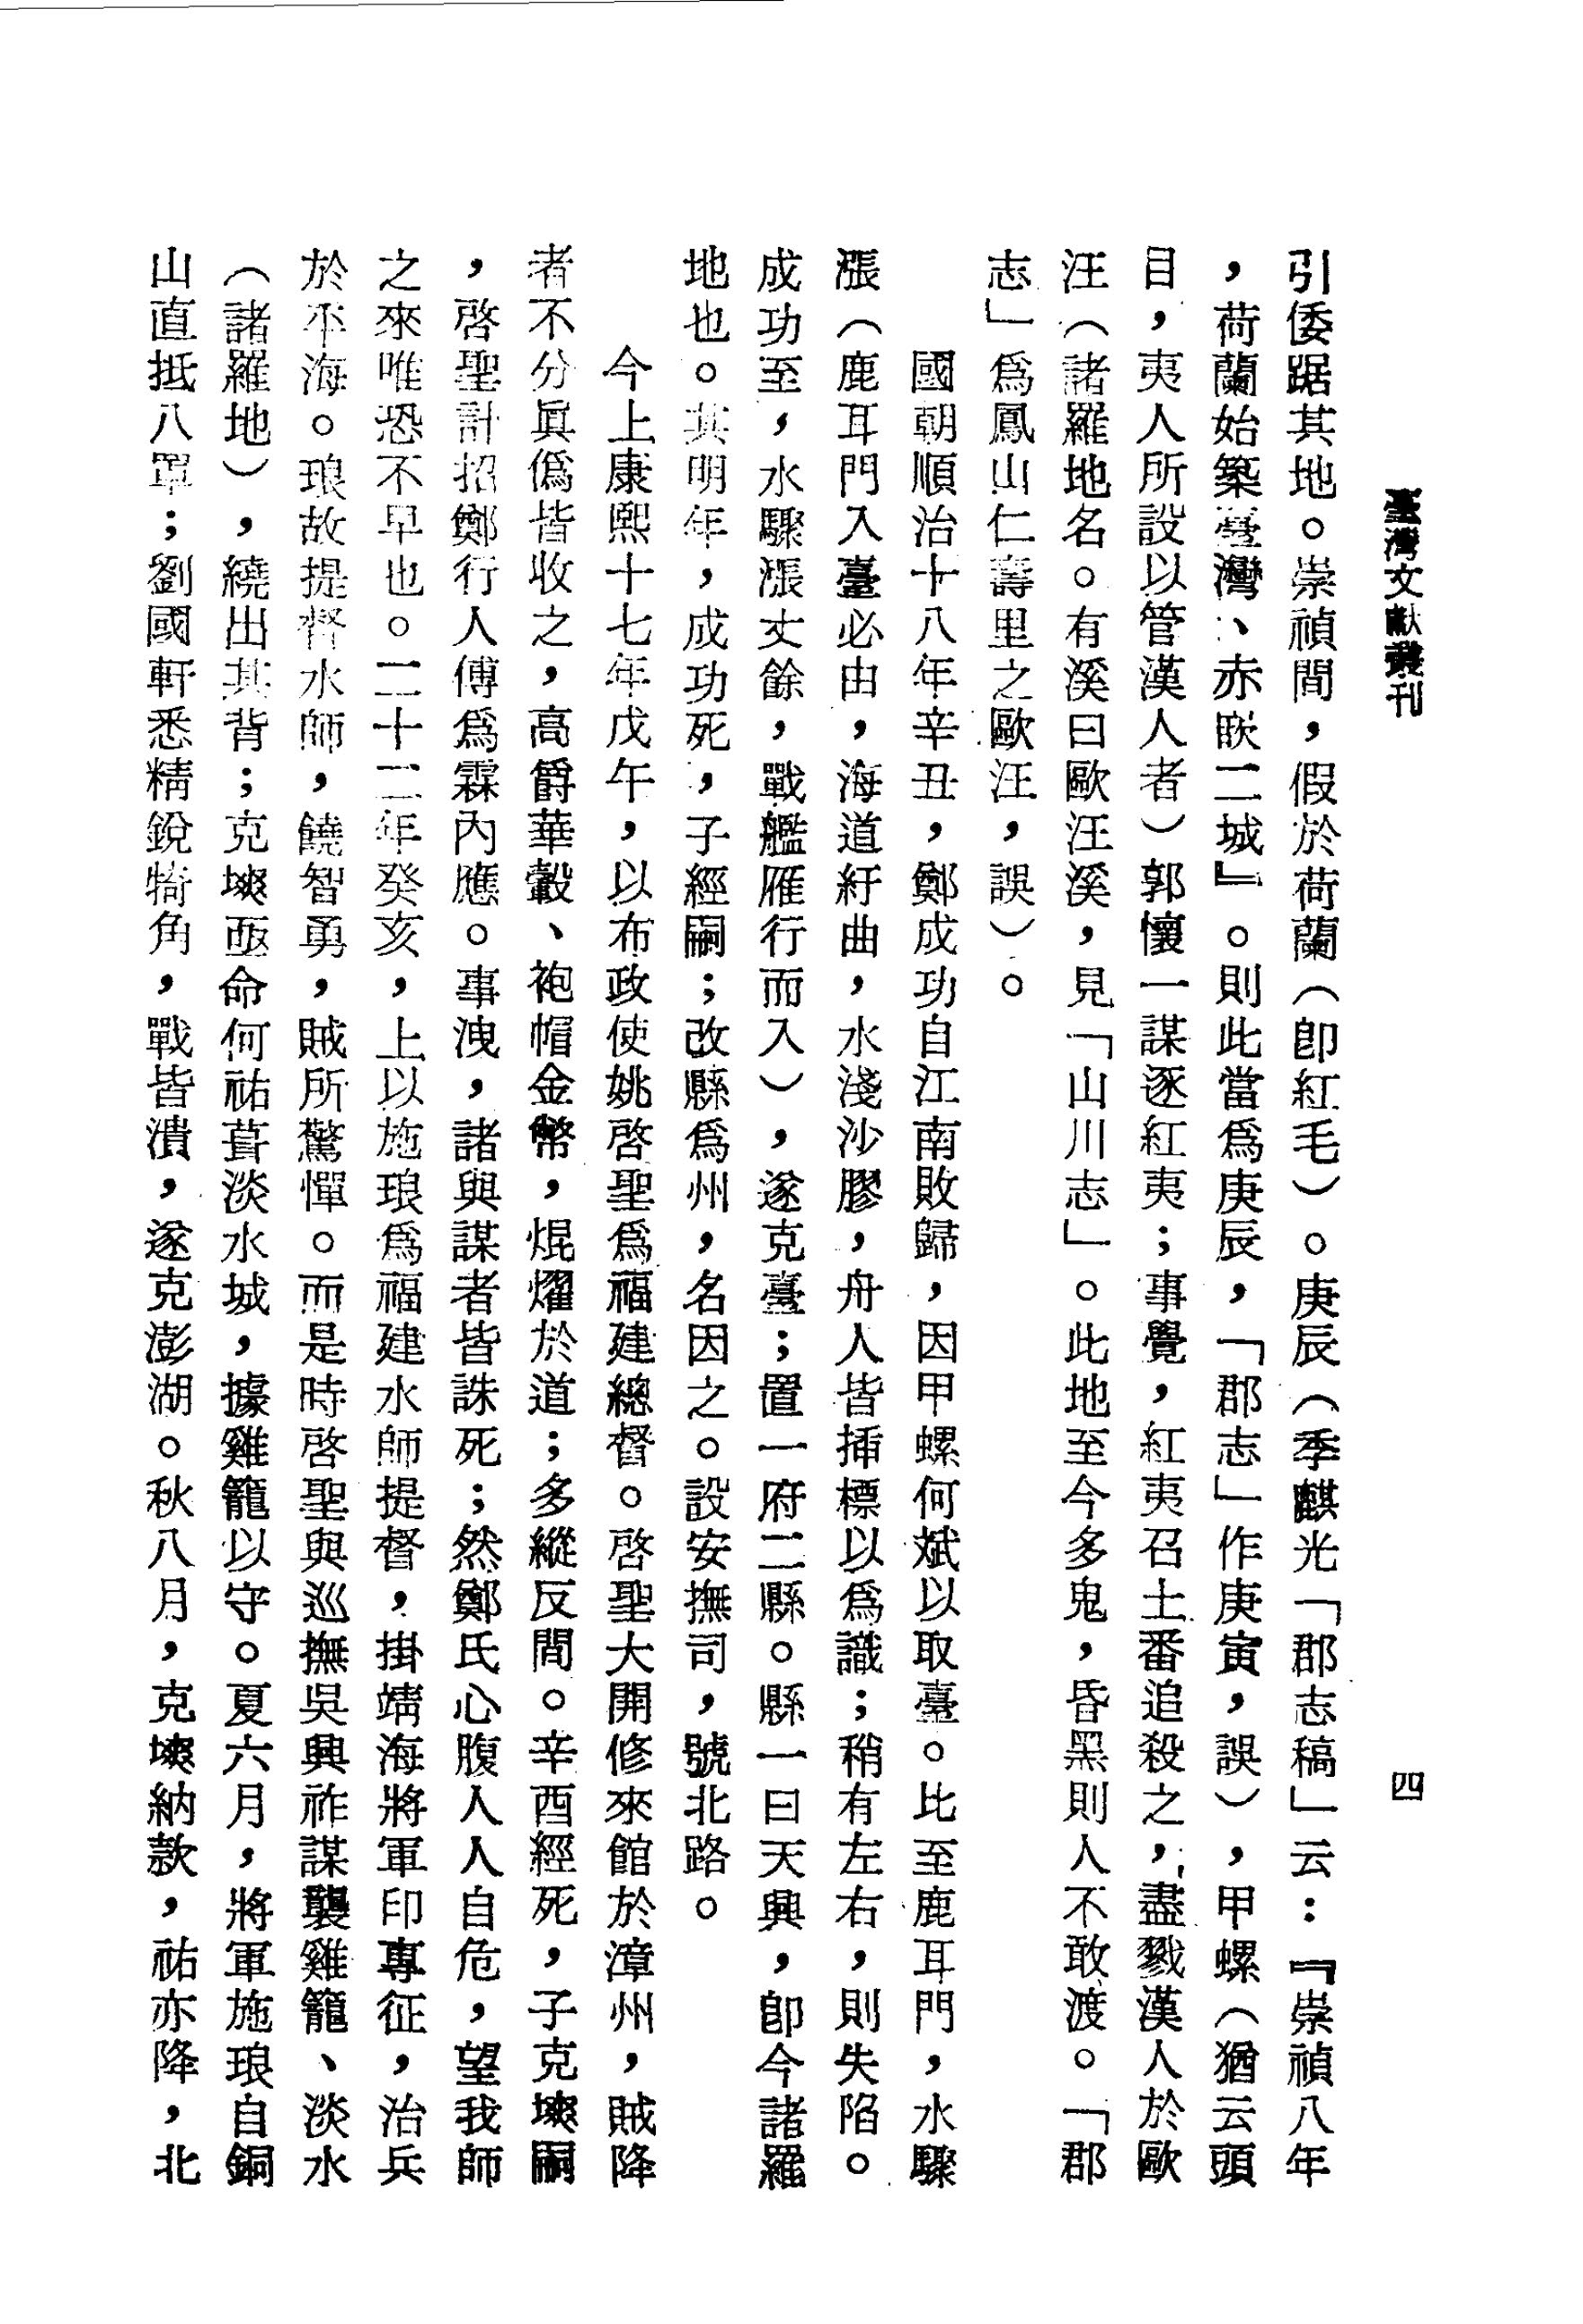 臺灣文獻叢刊
四
引倭踞其地。崇禎間，假於荷蘭（卽紅毛）。庚辰（季麒光「郡志稿」云：『崇禎八年
，荷蘭始築臺灣、赤嵌二城』。則此當爲庚辰，「郡志」作庚寅，誤），甲螺（猶云頭
目，夷人所設以管漢人者）郭懷一謀逐紅夷；事覺，紅夷召土番追殺之，盡戮漢人於歐
汪（諸羅地名。有溪曰歐汪溪，見「山川志」。此地至今多鬼，昏黑則人不敢渡。「郡
志」爲鳳山仁壽里之歐汪，誤）。
國朝順治十八年辛丑，鄭成功自江南敗歸，因甲螺何斌以取臺。比至鹿耳門，水驟
漲（鹿耳門入臺必由，海道紆曲，水淺沙膠，舟人皆插標以爲識；稍有左右，則失陷。
成功至，水驟漲丈餘，戰艦雁行而入），遂克臺；置一府二縣。縣一曰天興，卽今諸羅
地也。其明年，成功死，子經嗣；改縣爲州，名因之。設安撫司，號北路。
今上康熙十七年戊午，以布政使姚啓聖爲福建總督。啓聖大開修來館於漳州，賊降
者不分眞僞皆收之，高爵華轂、袍帽金幣，焜燿於道；多縱反間。辛酉經死，子克塽嗣
，啓聖計招鄭行人傅爲霖內應。事洩，諸與謀者皆誅死；然鄭氏心腹人人自危，望我師
之來唯恐不早也。二十二年癸亥，上以施琅爲福建水師提督，掛靖海將軍印專征，治兵
於平海。琅故提督水師，饒智勇，賊所驚憚。而是時啓聖與巡撫吳興祚謀襲雞籠、淡水
（諸羅地），繞出其背；克塽亟命何祐葺淡水城，據雞籠以守。夏六月，將軍施琅自銅
山直抵八罩；劉國軒悉精銳犄角，戰皆潰，遂克澎湖。秋八月，克塽納款，祐亦降，北